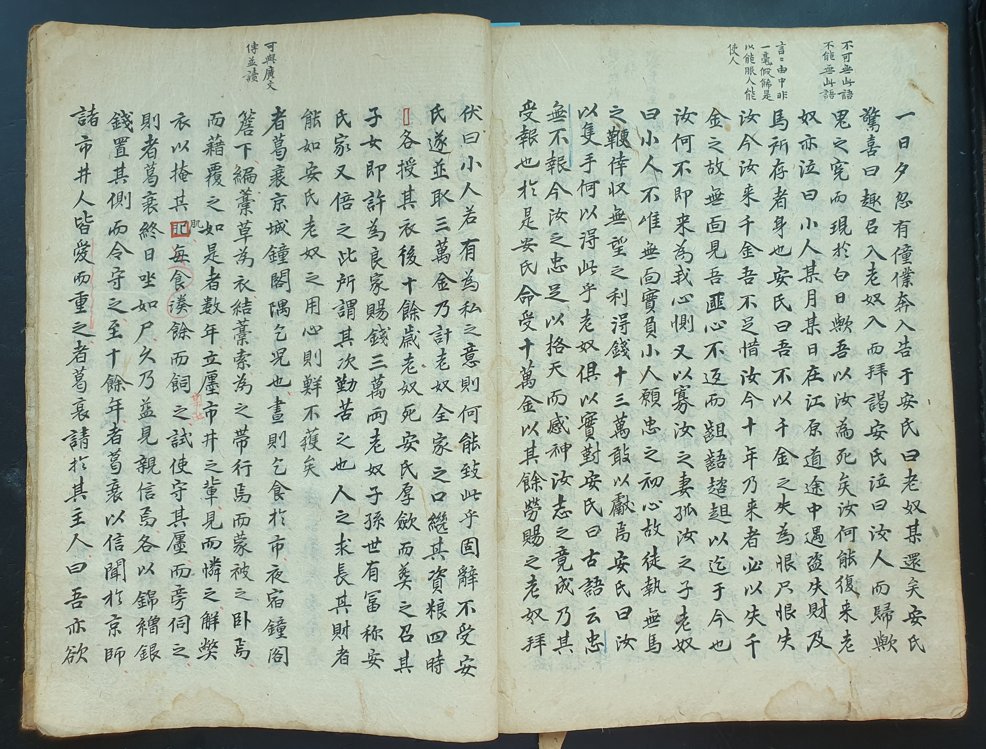 不可無此語
不能無此語
言言由中非
一毫假飾是
以能服人能
使人
一日夕忽有僮僕奔入告于安氏曰老奴某還矣安氏
驚喜曰趣召入老奴入而拜謁安氏泣曰汝人而歸歟
鬼之寃而現於白日歟吾以汝為死矣汝何能復來老
奴亦泣曰小人某月某日在江原道途中遇盗失財及
馬所存者身也安氏曰吾不以千金之失為恨只恨失
汝今汝来千金吾不足惜汝今十年乃来者必以失千
金之故無面見吾匪心不返而趄齬趑趄以迄于今也
汝何不即来為我心惻又以寡汝之妻孤汝之子老奴
曰小人不惟無面實負小人願忠之初心故徒執無馬
之鞭倖收無望之利得錢十三萬敢以獻焉安氏曰汝
以隻手何以得此乎老奴俱以實對安氏曰古語云忠
無不報今汝之忠足以格天而感神汝志之竟成乃其
受報也於是安氏命受十萬金以其餘勞賜之老奴拜
可與廣文
傳並讀
伏曰小人若有為私之意則何能致此乎固辭不受安
氏遂並取三萬金乃計老奴全家之口繼其資粮四時
各授其衣後十餘歲老奴死安氏厚歛而葬之召其
子女即許為良家賜錢三萬両老奴子孫世有冨称安
氏家又倍之此所謂其次勤苦之也人之求長其財者
能如安氏老奴之用心則鮮不獲矣
者葛衰京城鐘閣隅乞児也晝則乞食於市夜宿鐘閣
簷下編藁草為衣結藁索為之帯行焉而蒙被之卧焉
而藉覆之如是者数年立廛市井之輩見而憐之解獘
衣以掩其肌每食湊餘而飼之試使守其廛而旁伺之
則者葛衰終日坐如尸久乃益見親信焉各以錦繒銀
錢置其側而令守之至十餘年者葛衰以信聞於京師
諸市井人皆愛而重之者葛衰請於其主人曰吾亦欲